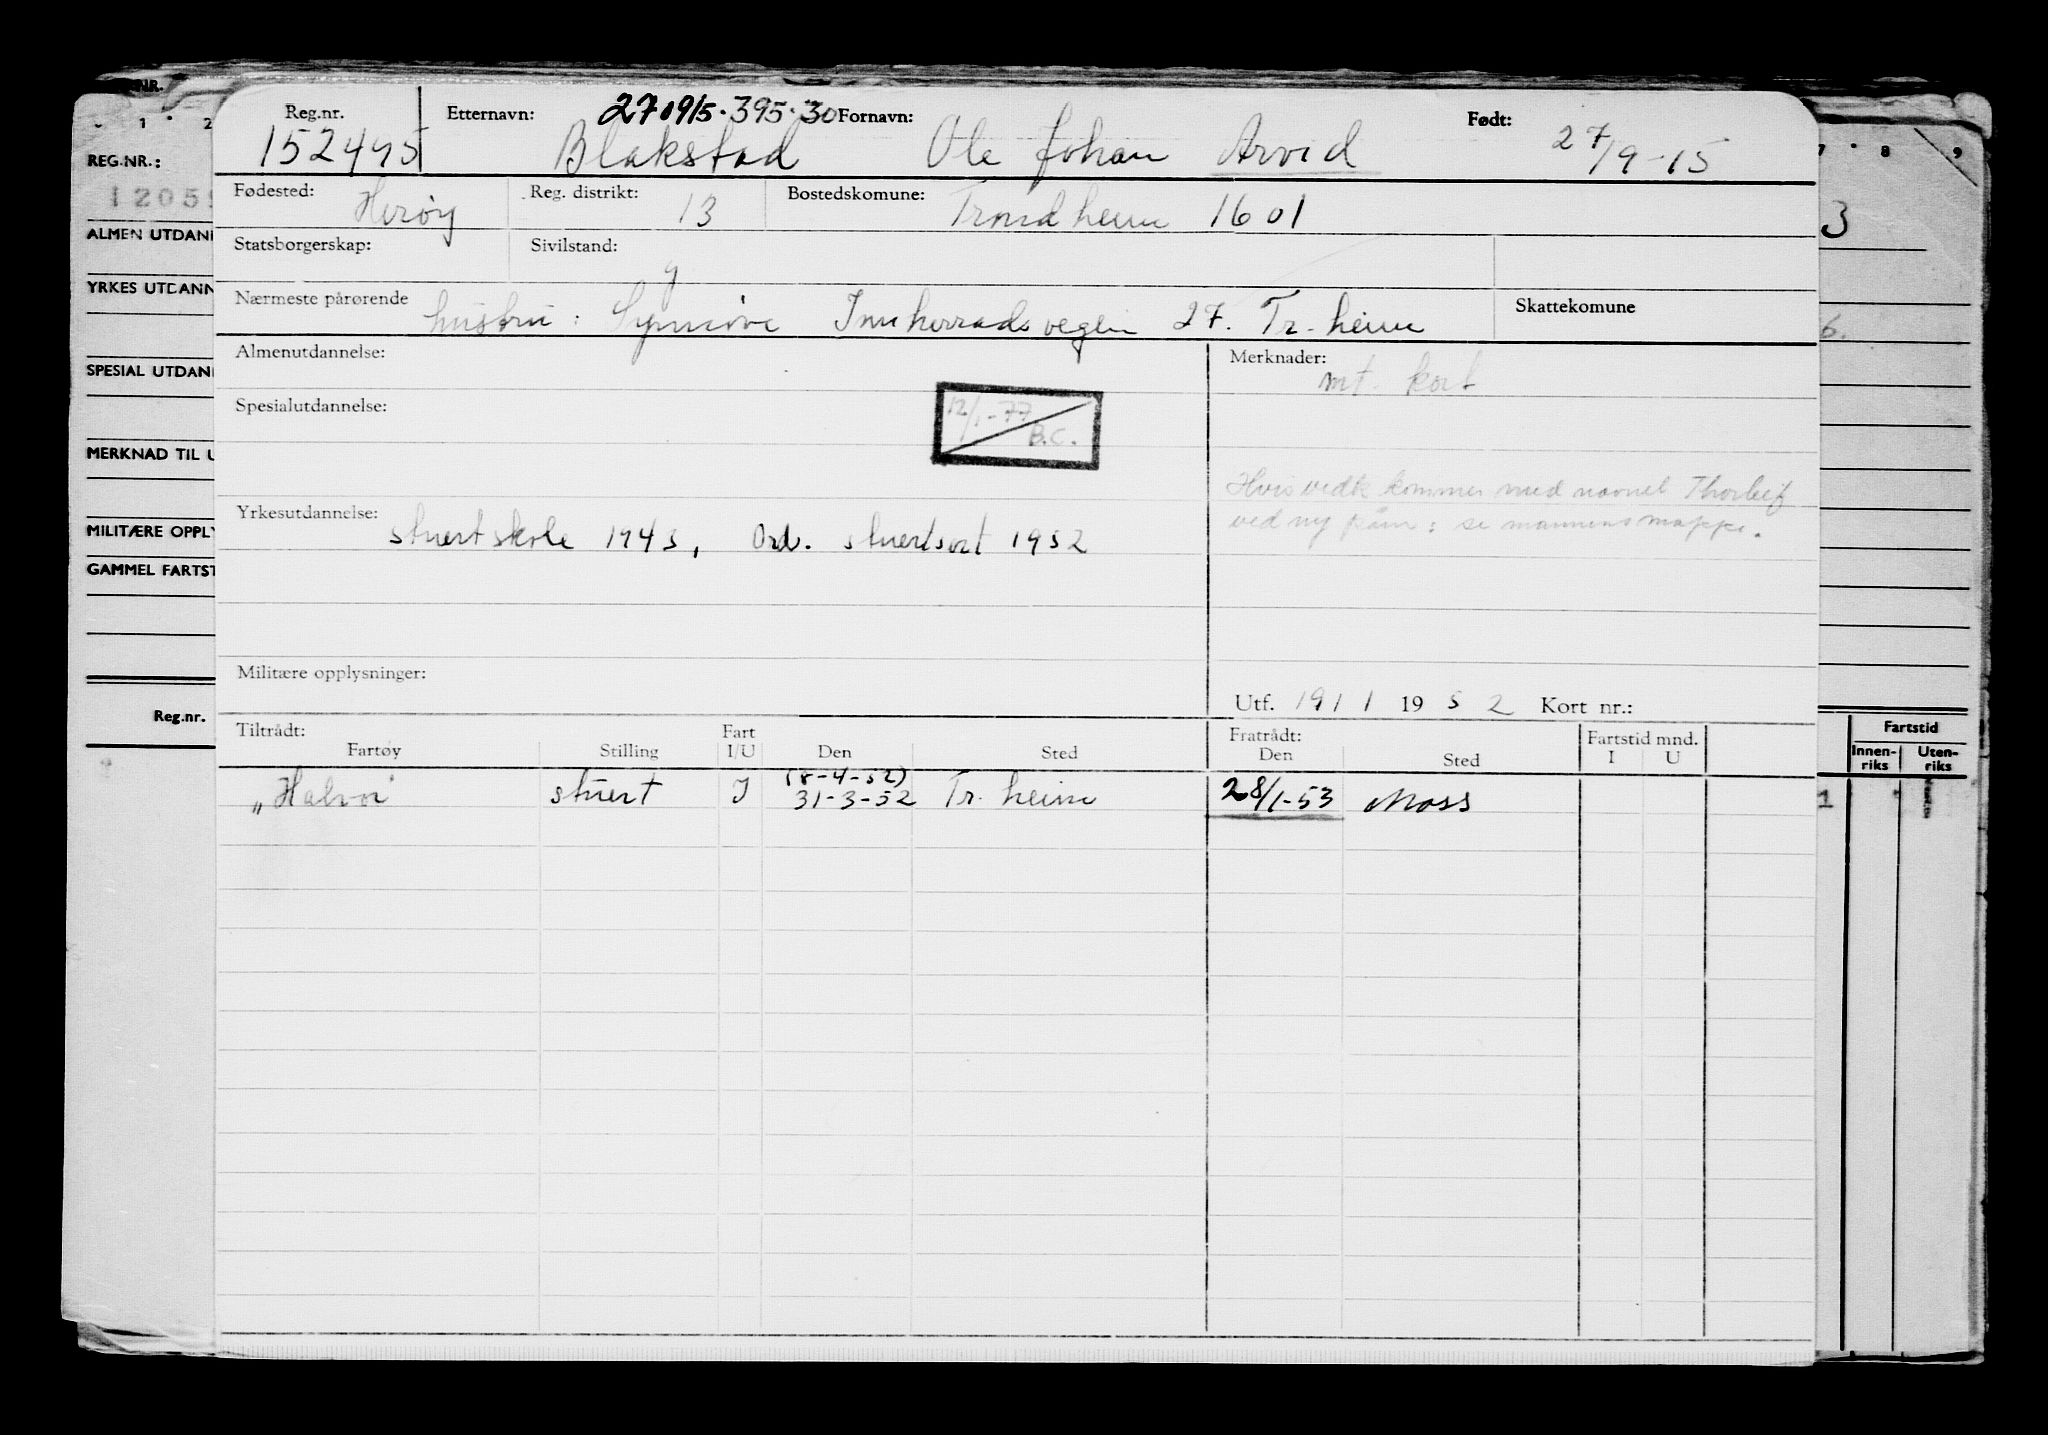 NR.
1 2
REG.NR.:
ALMEN UTDAN
YRKES UTDANN
SPESIAL UTDAN
MERKNAD TIL U
MILITÆRE OPPLY
GAMMEL FARTST
Reg.nr.
Reg.nr. Etternavn: 270915·395·30 Fornavn: Født:
152495 Blakstad Ole Johan Arvid 27/9-15
Fødested: Herøy Reg. distrikt: 13 Bostedskomune: Trondheim 1601
Statsborgerskap: Sivilstand: g
Nærmeste pårørende hustru: Synnöve Innherradsvegen 27. Tr.heim Skattekomune
Almenutdannelse: Merknader:
mt. kort
Spesialutdannelse:
12/1-77
B.C.
Hvis vedk kommer med navnet Thorleif
ved ny påm: se mannens mappe.
Yrkesutdannelse: stuertskole 1943, Ord. stuertsert 1952
Militære opplysninger:
Utf. 19/1 1952 Kort nr.:
Tiltrådt: Fart Fratrådt: Fartstid mnd.
Fartøy Stilling I/U Den Sted Den Sted I U
(8-4-52)
stuert I 31-3-52 Tr.heim 28/1-53 Moss
8 9
3
6.
Fartstid
Innen-riks Uten-riks
1